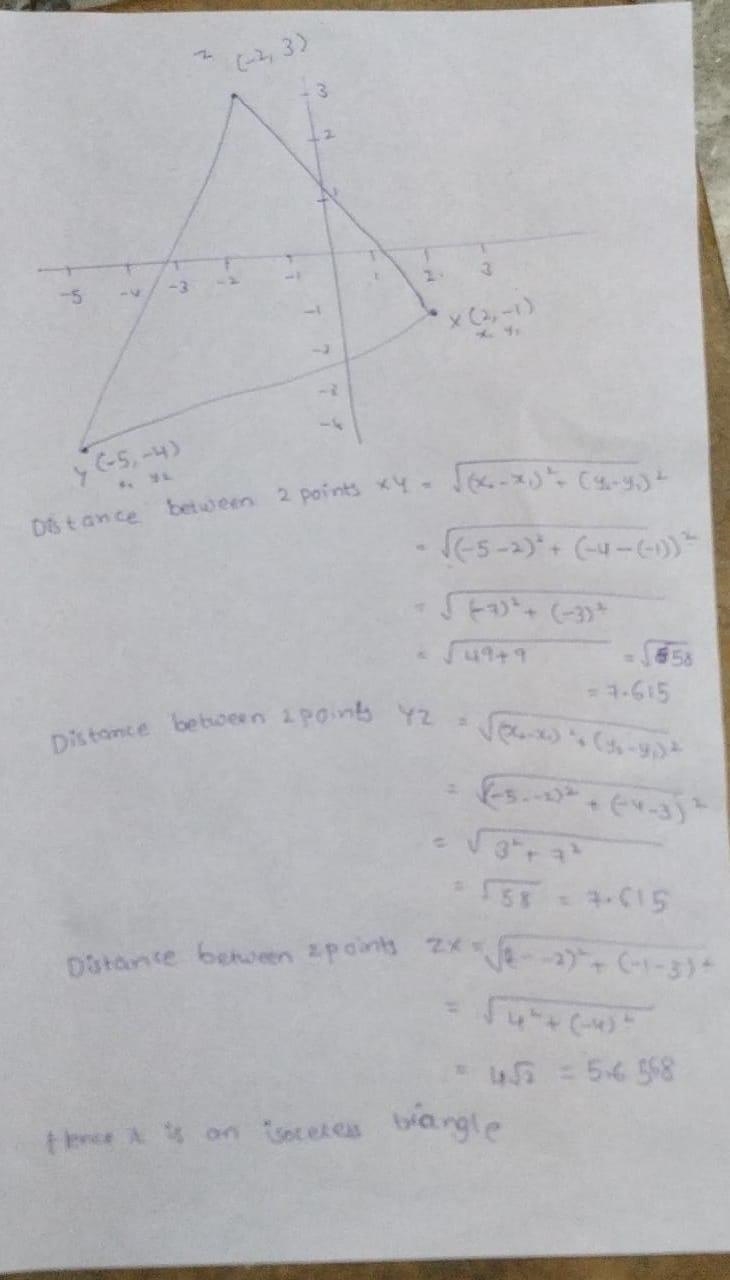 z (-2, 3)
3
2
1
-5 -4 -3 -2 -1 1 2 3
-1
-2
-3
-4
X (2, -1)
x₁ y₁
Y (-5, -4)
x₂ y₂
Distance between 2 points XY = √(x₂-x₁)² + (y₂-y₁)²
= √(-5-2)² + (-4-(-1))²
= √(-7)² + (-3)²
= √49+9 = √58
= 7.615
Distance between 2 points YZ = √(x₂-x₁)² + (y₂-y₁)²
= √(-5--2)² + (-4-3)²
= √3² + 7²
= √58 = 7.615
Distance between 2 points ZX = √(2--2)² + (-1-3)²
= √4² + (-4)²
= 4√2 = 5.6568
Hence it is an isoceless triangle